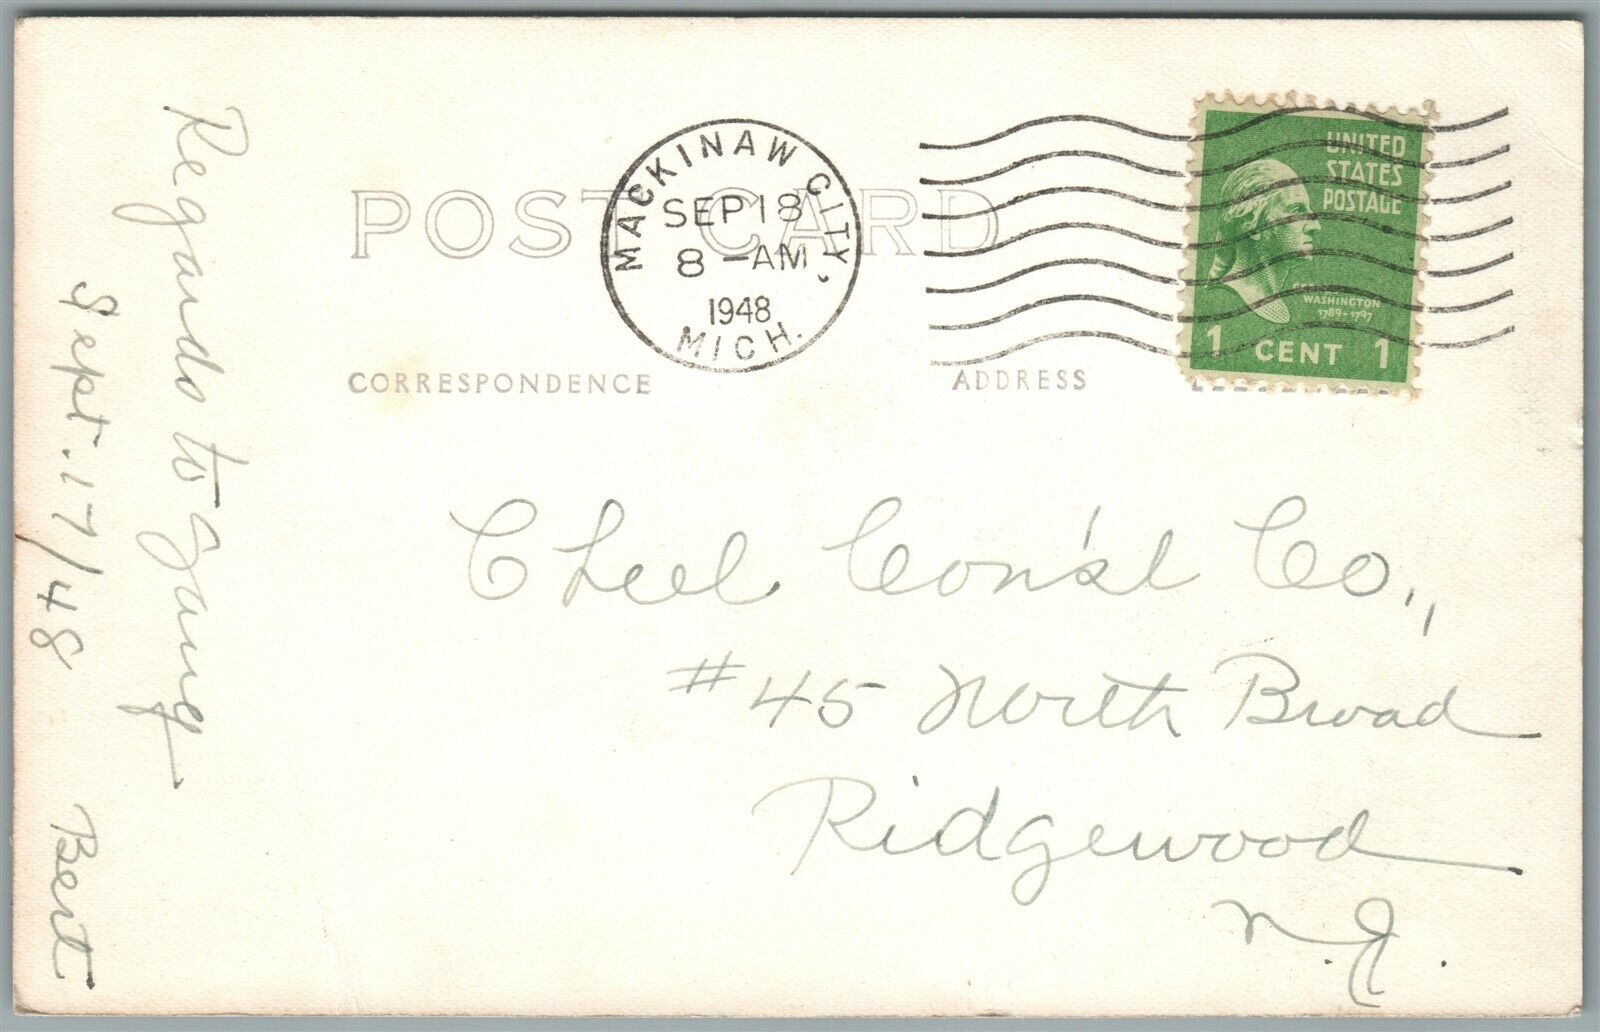 Regards to gang
Sept. 17/48 Bert
POST CARD
MACKINAW CITY,
SEP 18
8 - AM
1948
MICH.
UNITED
STATES
POSTAGE
GEORGE
WASHINGTON
1789-1797
1 CENT 1
CORRESPONDENCE
ADDRESS
Cheel Con'st Co.,
#45 North Broad
Ridgewood
N.J.